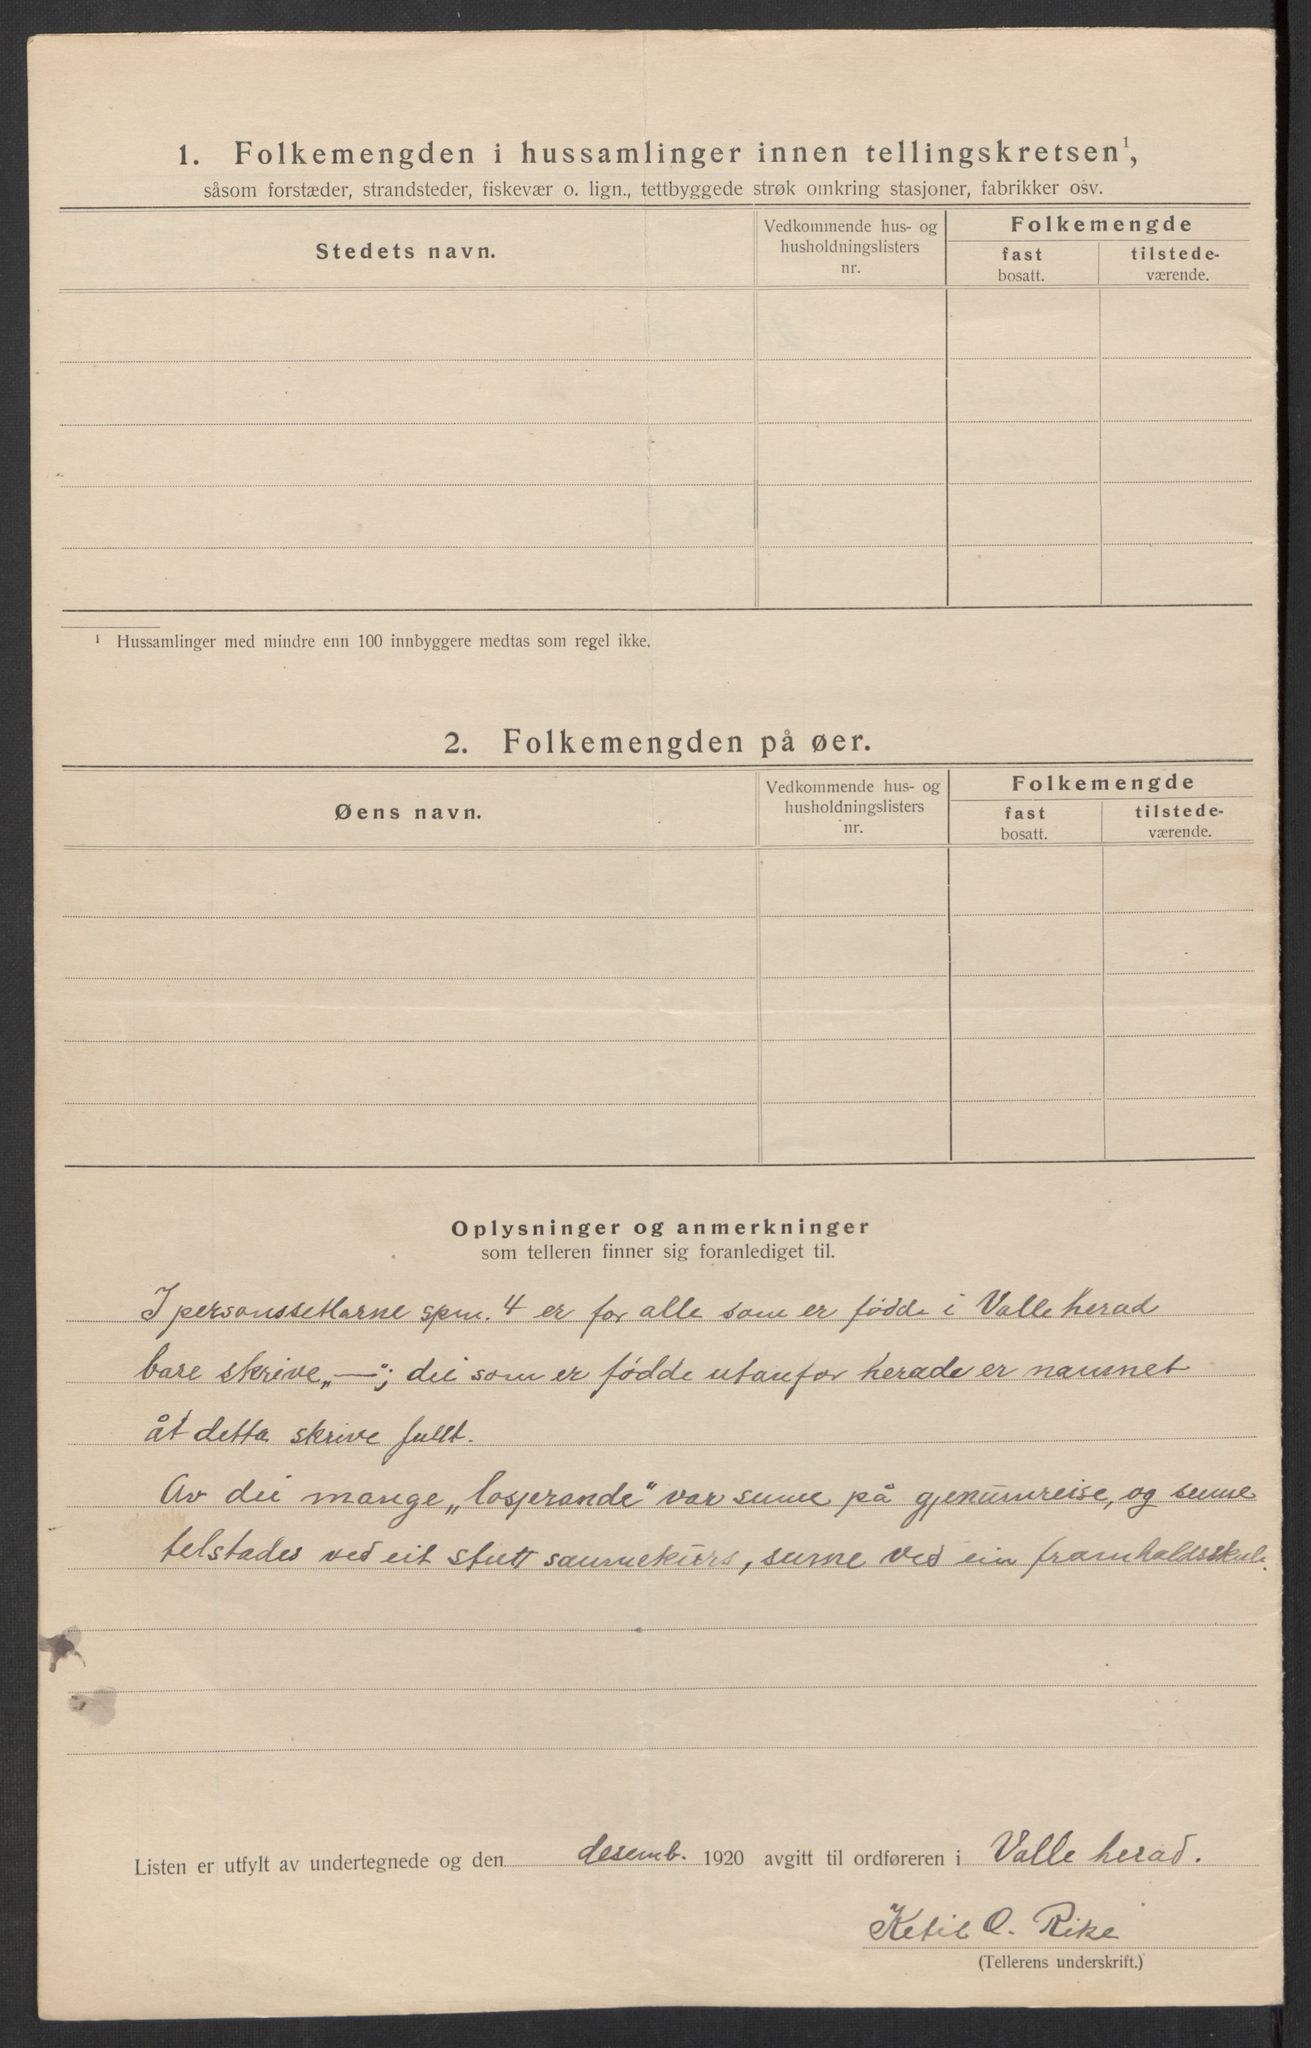 1. Folkemengden i hussamlinger innen tellingskretsen¹,
såsom forstæder, strandsteder, fiskevær o. lign., tettbyggede strøk omkring stasjoner, fabrikker osv.
Stedets navn.
Vedkommende hus- og
husholdningslisters
nr.
Folkemengde
fast
bosatt.
tilstede-
værende.
¹ Hussamlinger med mindre enn 100 innbyggere medtas som regel ikke.
2. Folkemengden på øer.
Øens navn.
Vedkommende hus- og
husholdningslisters
nr.
Folkemengde
fast
bosatt.
tilstede-
værende.
Oplysninger og anmerkninger
som telleren finner sig foranlediget til.
I personssetlarne spm. 4 er for alle som er fødde i Valle herad
bare skrive „—“; dei som er fødde utanfor herade er namnet
åt detta skrive fullt.
Av dei mange „losjerande“ var sume på gjenumreise, og sume
telstades ved eit stutt saumekurs, sume ved ein framhaldsskule.
Listen er utfylt av undertegnede og den desemb. 1920 avgitt til ordføreren i Valle herad.
Ketil O. Rike
(Tellerens underskrift.)